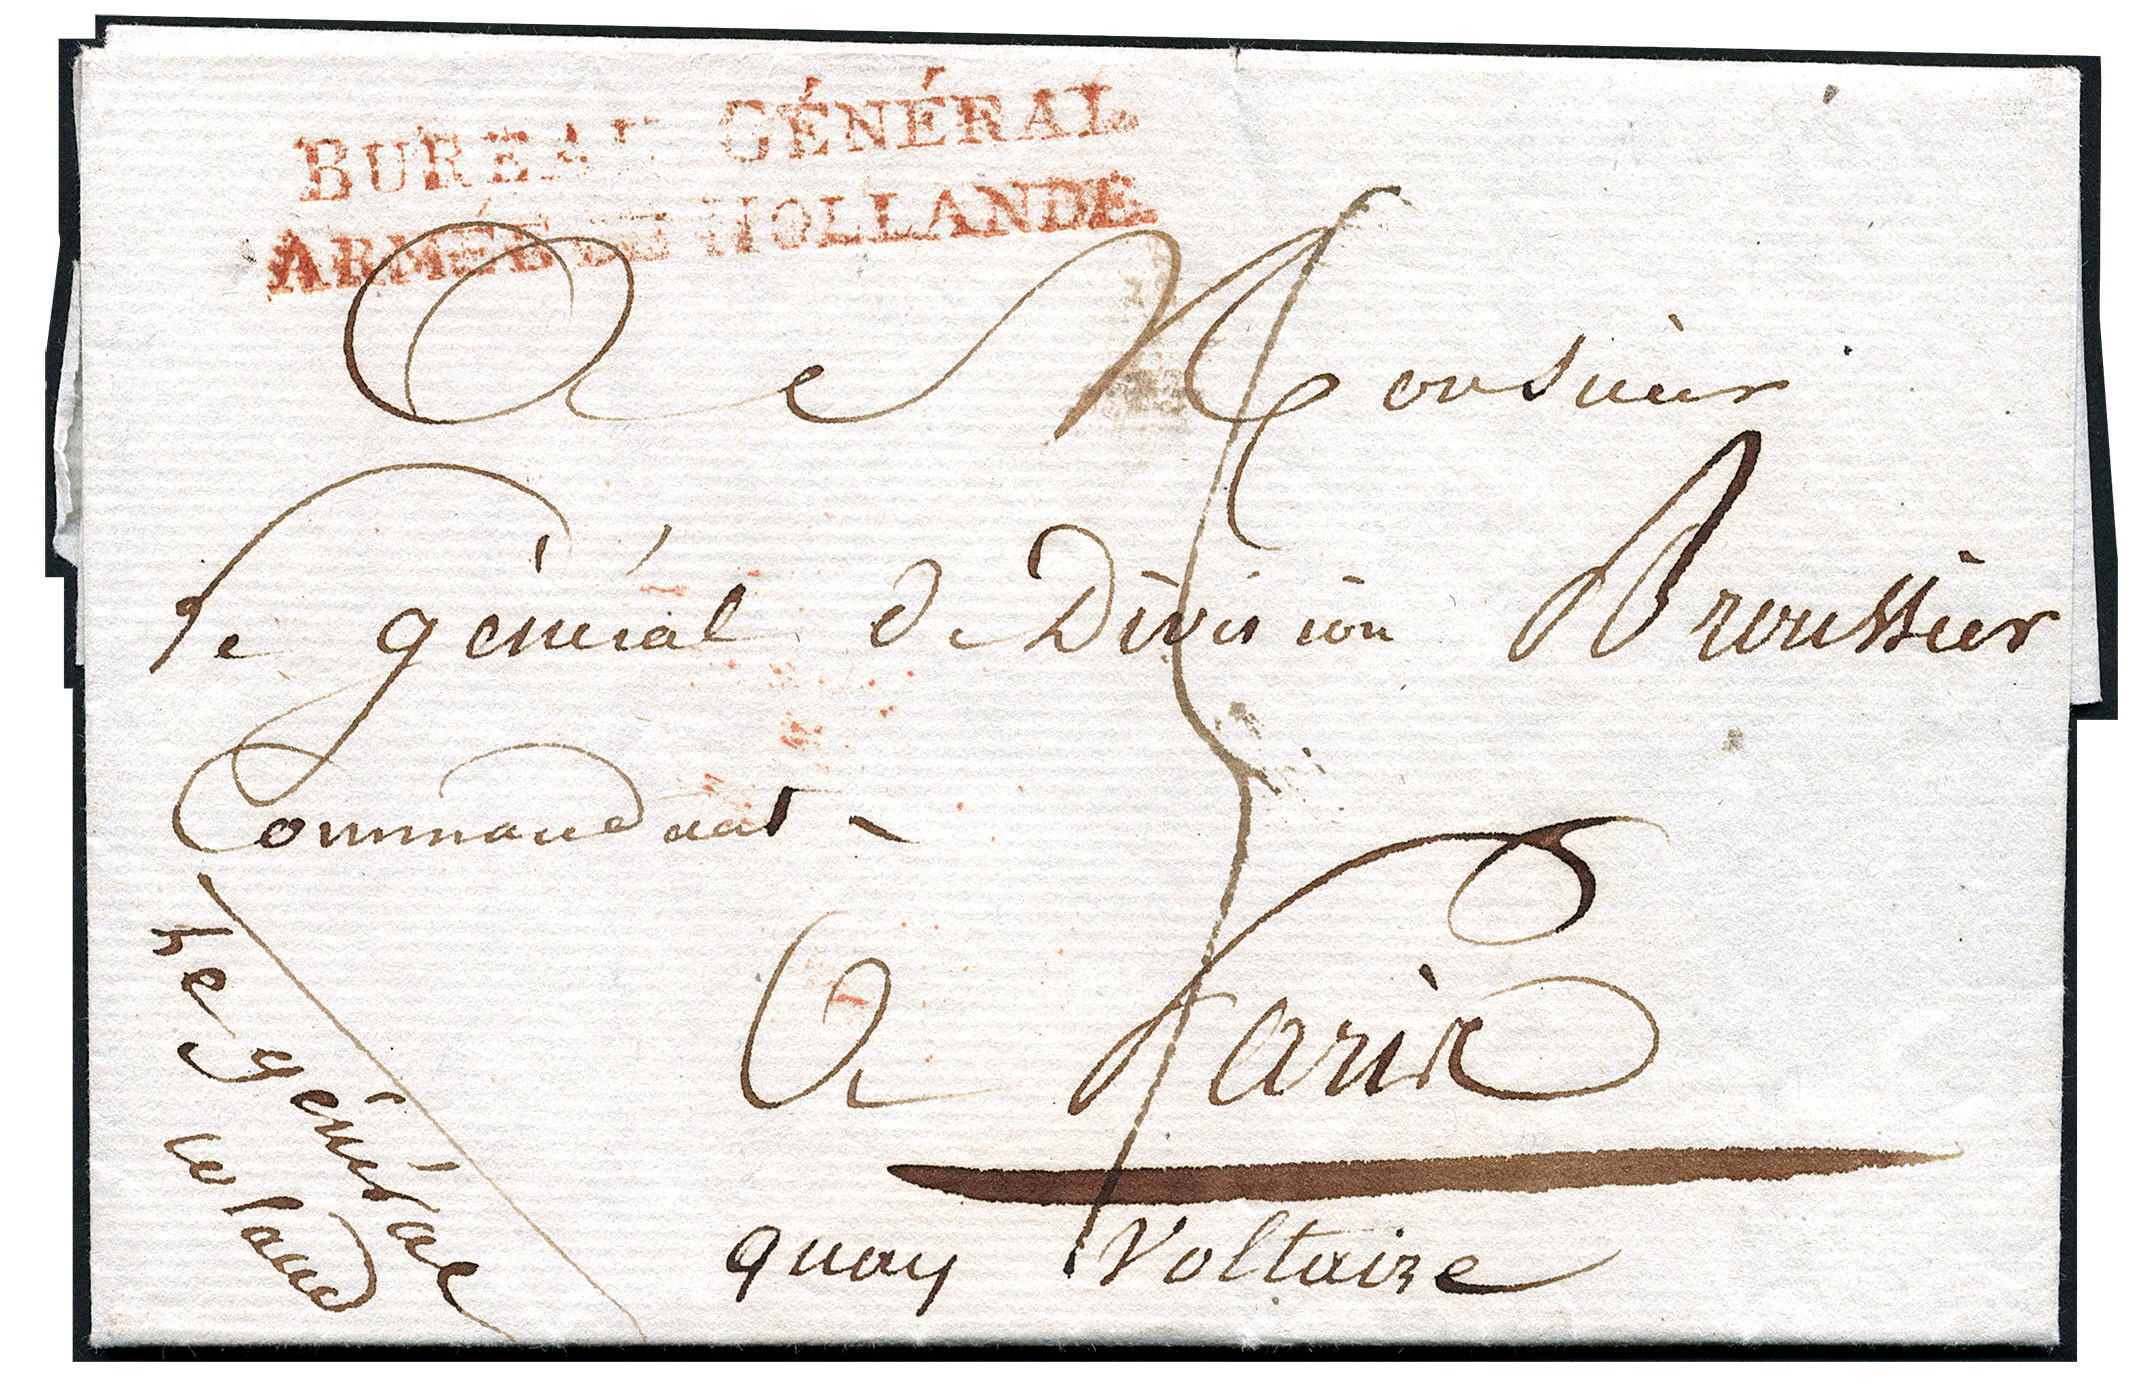 BUREAU GÉNÉRAL
ARMÉE DE HOLLANDE
A Monsieur
Le général de Division Broussier
Commandant
A Paris
quay Voltaire
Le général